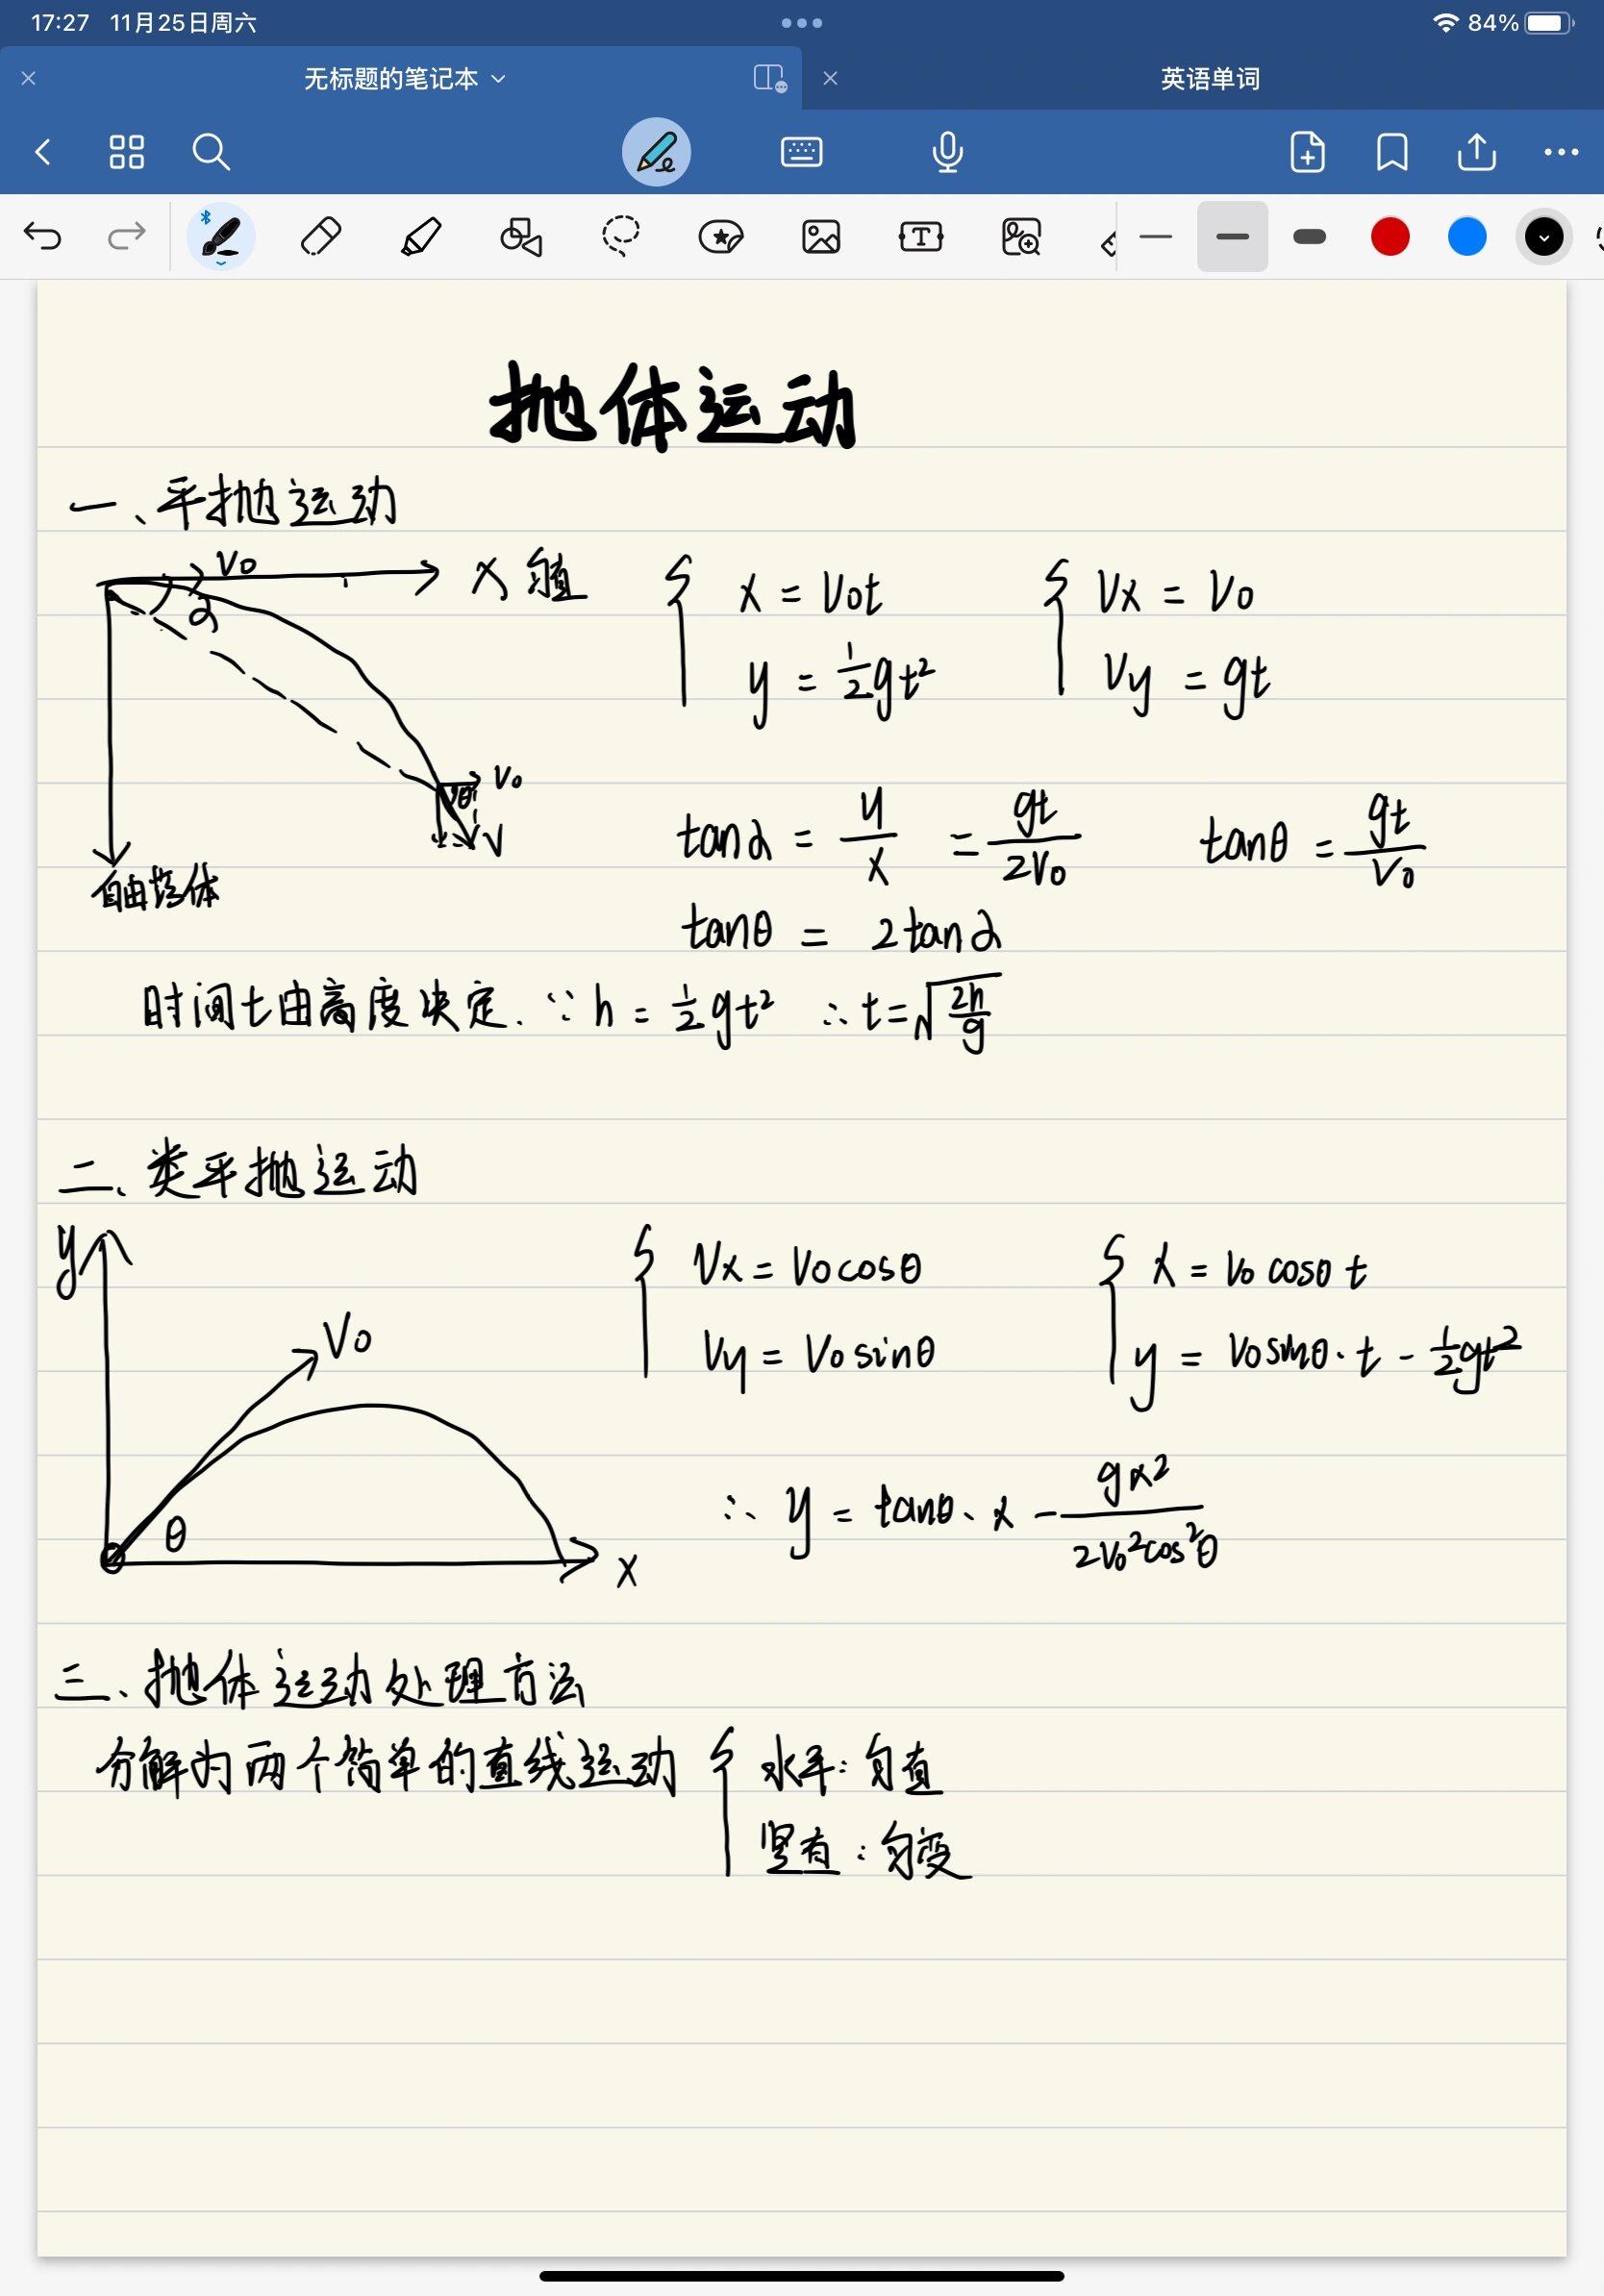 17:27 11月25日周六 84%
无标题的笔记本 英语单词
抛体运动
一、平抛运动
V₀ x
α
{ x = V₀t
y = ½gt²
{ Vx = V₀
Vy = gt
θ V₀
V
自由落体
tanα = y/x = gt/2V₀ tanθ = gt/V₀
tanθ = 2tanα
时间t由高度决定. ∵ h = ½gt² ∴ t = √(2h/g)
二、类平抛运动
y
V₀
θ
x
{ Vx = V₀cosθ
Vy = V₀sinθ
{ x = V₀cosθ t
y = V₀sinθ·t - ½gt²
∴ y = tanθ、x - gx²/2V₀²cos²θ
三、抛体运动处理方法
分解为两个简单的直线运动 { 水平:匀直
竖直:匀变